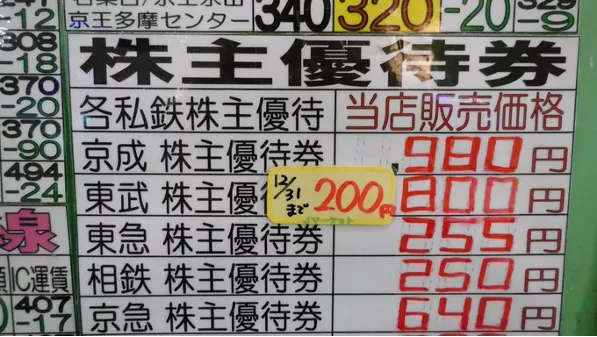 京王多摩センター 340 320 -20 -9
-12
308
-18
370
-20
370
-90
494
-24
線
IC運賃
407
-17
株主優待券
各私鉄株主優待 当店販売価格
京成 株主優待券 980円
東武 株主優待券 800円
12/31まで 200円
東急 株主優待券 255円
相鉄 株主優待券 250円
京急 株主優待券 640円